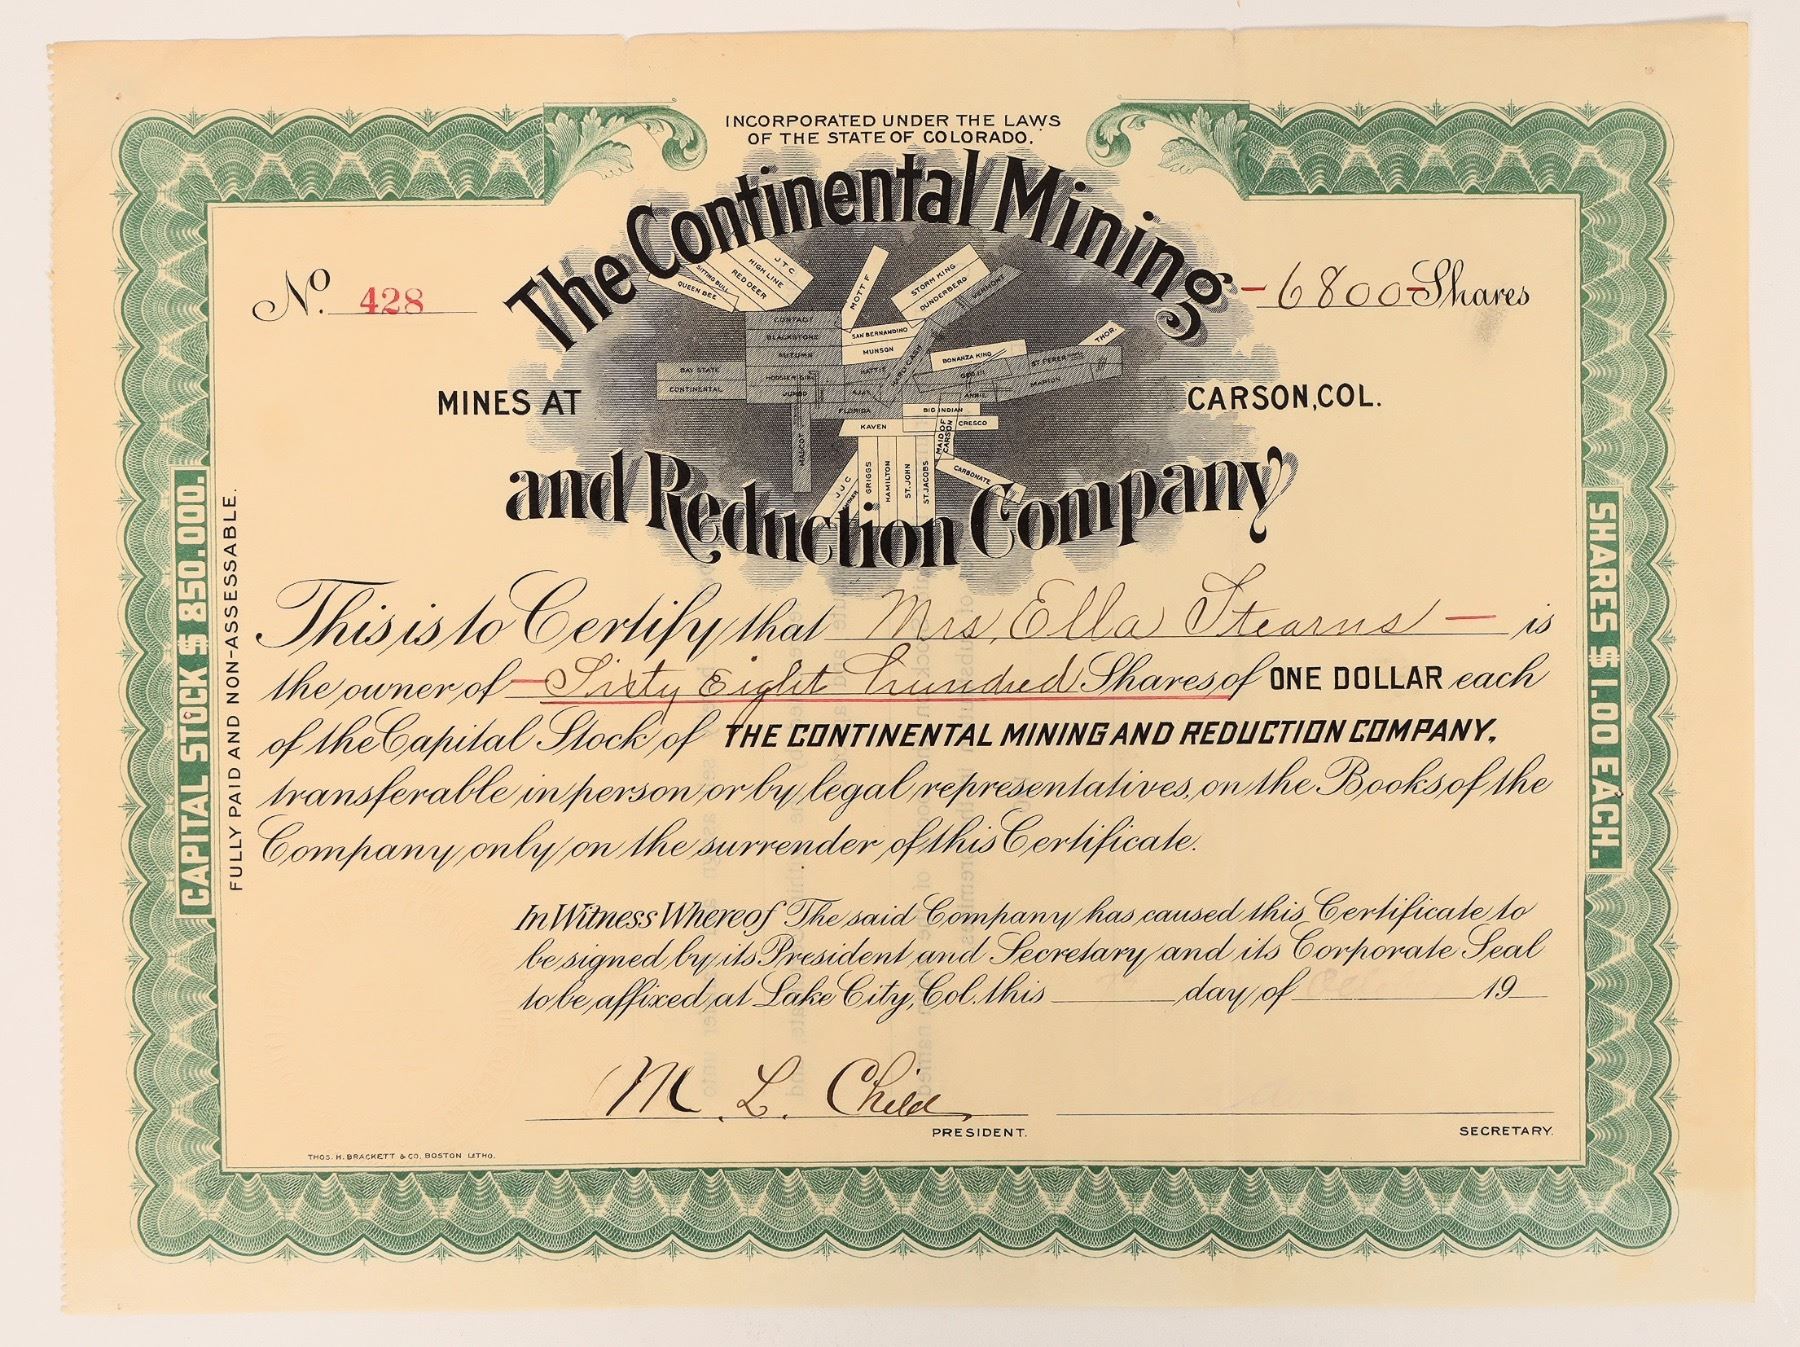 INCORPORATED UNDER THE LAWS
OF THE STATE OF COLORADO.
The Continental Mining
No. 428
-6800- Shares
J.T.C.
HIGH LINE
RED DEER
SITTING BULL
QUEEN BEE
MOTT F
STORM KING
DUNDERBERG
VERMONT
CONTACT
BLACKSTONE
AUTUMN
SAN BERNANDINO
MUNSON
BONANZA KING
THOR.
BAY STATE
CONTINENTAL
HOOSIER GIRL
JUMBO
HATTIE
ST. PETER
MARION
ANNIE
FLORIDA
BIG INDIAN
KAVEN
MAID OF CARSON
CRESCO
CARBONATE
J.J.C.
GRIGGS
HAMILTON
ST. JOHN
ST. JACOBS
MINES AT
CARSON, COL.
and Reduction Company
CAPITAL STOCK $ 850.000.
FULLY PAID AND NON-ASSESSABLE.
SHARES $1.00 EACH.
This is to Certify that Mrs. Ella Stearns — is
the owner of — Sixty Eight hundred Shares of ONE DOLLAR each
of the Capital Stock of THE CONTINENTAL MINING AND REDUCTION COMPANY.
transferable in person or by legal representatives, on the Books of the
Company only on the surrender of this Certificate.
In Witness Whereof The said Company has caused this Certificate to
be signed by its President and Secretary and its Corporate Seal
to be affixed at Lake City, Col. this day of 19
M. L. Child
PRESIDENT.
SECRETARY.
THOS. H. BRACKETT & CO. BOSTON LITHO.